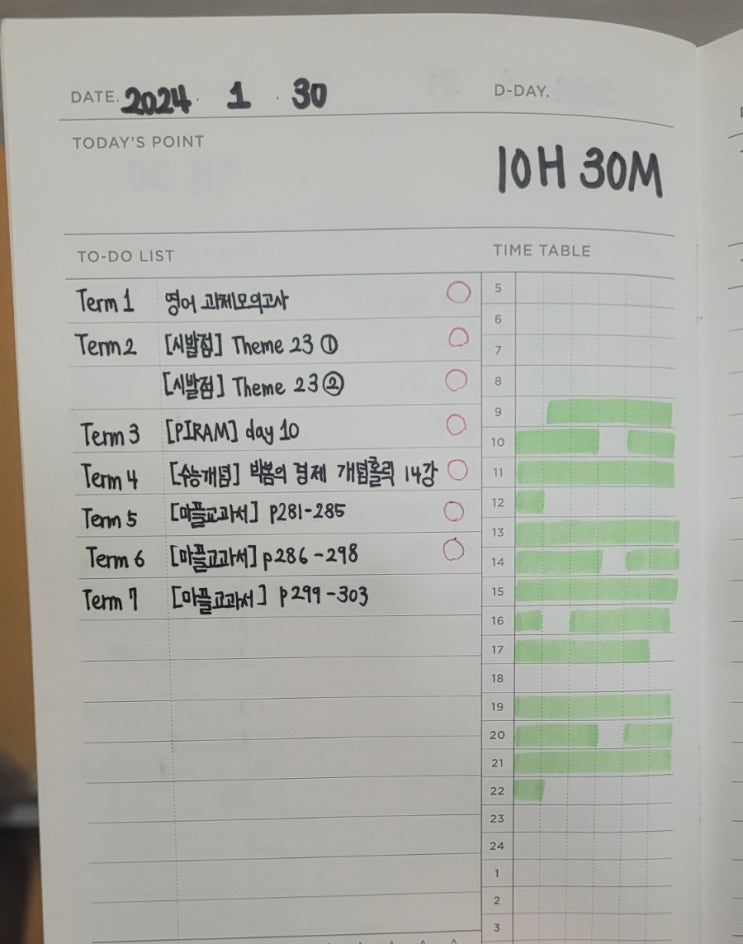 DATE. 2024 . 1 . 30
D-DAY.
TODAY'S POINT
10H 30M
TO-DO LIST
Term 1 영어 과제모의고사
Term 2 [시발점] Theme 23 ①
[시발점] Theme 23 ②
Term 3 [PIRAM] day 10
Term 4 [수능개념] 박봄의 경제 개념홀릭 14강
Term 5 [마플교과서] p281-285
Term 6 [마플교과서] p286-298
Term 7 [마플교과서] p299-303
TIME TABLE
5
6
7
8
9
10
11
12
13
14
15
16
17
18
19
20
21
22
23
24
1
2
3